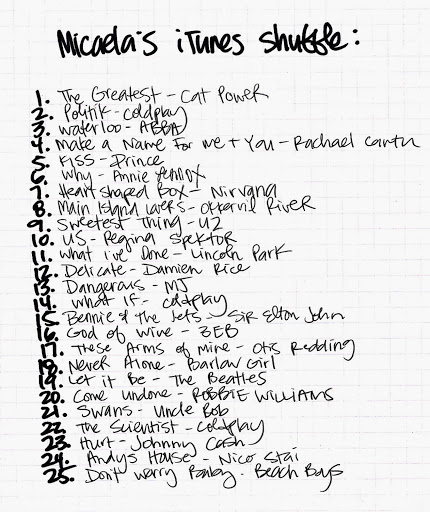 Micaela's iTunes Shuffle:
1. The Greatest - Cat Power
2. Politik - Coldplay
3. Waterloo - ABBA
4. Make a Name for me + You - Rachael Cantu
5. KISS - Prince
6. Why - Annie Lennox
7. Heart shaped Box - Nirvana
8. Main Island Lovers - Okkervil River
9. Sweetest Thing - U2
10. US - Regina Spektor
11. What I've Done - Lincoln Park
12. Delicate - Damien Rice
13. Dangerous - MJ
14. What If - Coldplay
15. Bennie & the Jets - Sir Elton John
16. God of Wine - 3EB
17. These Arms of Mine - Otis Redding
18. Never Alone - Barlow Girl
19. Let it Be - The Beatles
20. Come Undone - ROBBIE WILLIAMS
21. Swans - Uncle Bob
22. The Scientist - Coldplay
23. Hurt - Johnny Cash
24. Andys House - Nico Stai
25. Don't Worry Baby - Beach Boys